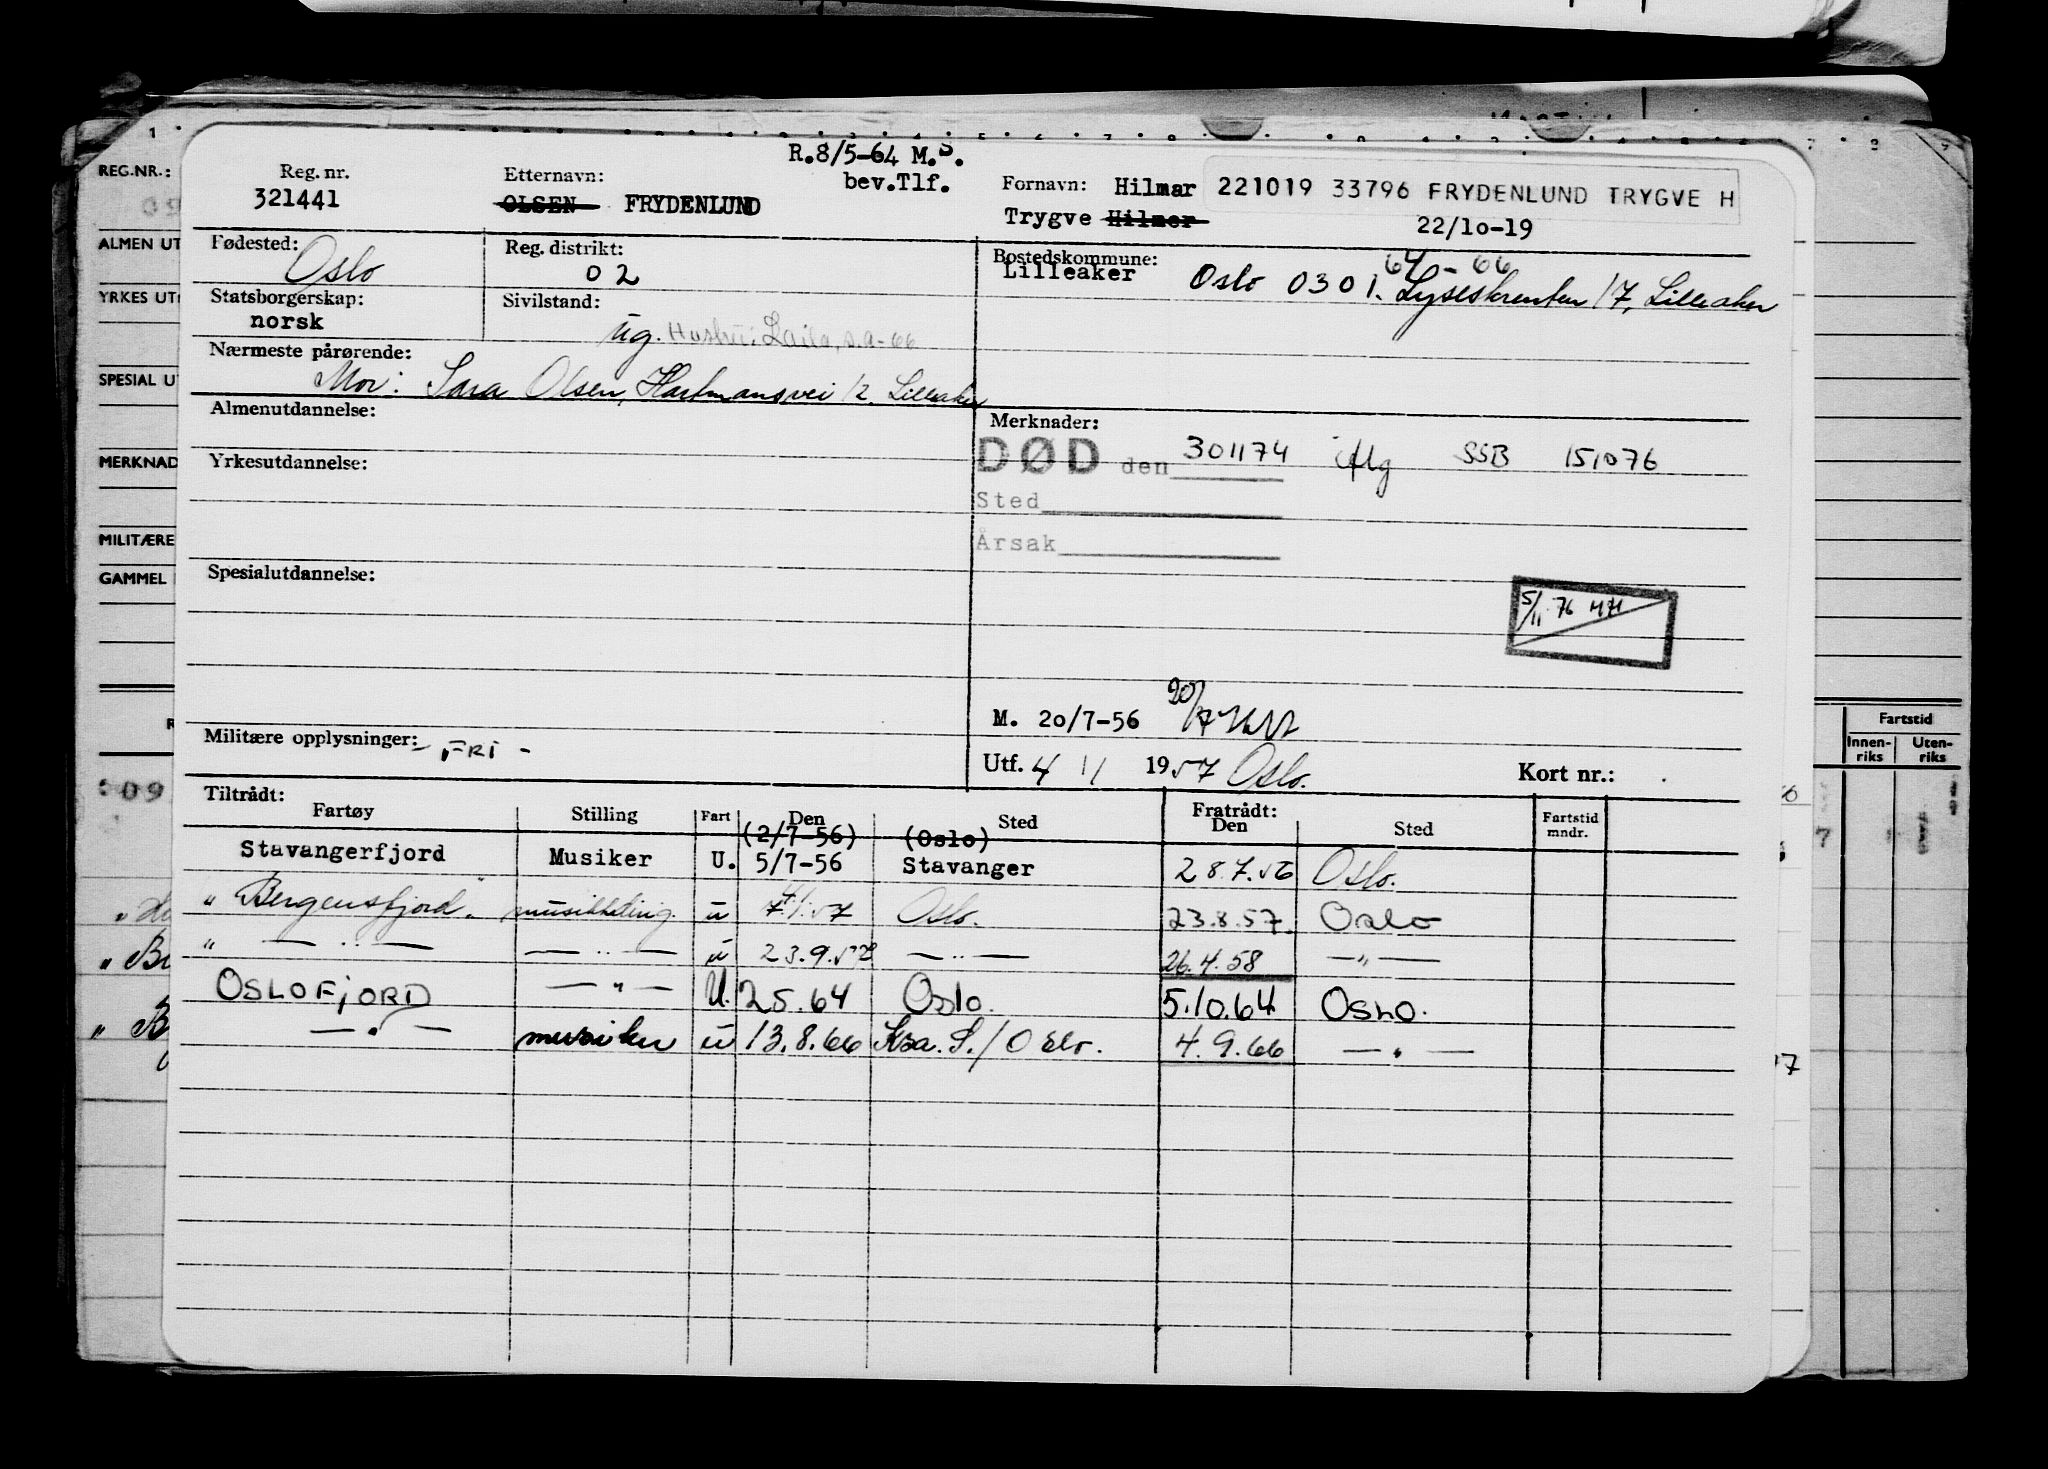 R.8/5-64 M.S.
bev.Tlf.
REG.NR.:
Reg. nr.
321441
Etternavn:
OLSEN FRYDENLUND
Fornavn: Hilmar
Trygve Hilmer
221019 33796 FRYDENLUND TRYGVE H
22/10-19
ALMEN UT
Fødested: Oslo
Reg. distrikt: 02
Bostedskommune:
Lilleaker
64 - 66
Oslo 0301. Lyseskrenten 17, Lilleaker
YRKES UT
Statsborgerskap:
norsk
Sivilstand:
ug. Hustru: Laila, s.a-66
Nærmeste pårørende:
Mor: Sara Olsen, Hartmansvei 12. Lilleaker
SPESIAL UT
Almenutdannelse:
Merknader:
DØD den 301174 iflg SSB 151076
MERKNAD
Yrkesutdannelse:
Sted
MILITÆRE
Årsak
GAMMEL
Spesialutdannelse:
5/11 76
M. 20/7-56 20/7
Militære opplysninger: - FRI -
Utf. 4/1 1957 Oslo.
Kort nr.:
Tiltrådt:
Fartøy Stilling Fart Den Sted
Fratrådt:
Den Sted
Fartstid
mndr.
(2/7-56) (Oslo)
Stavangerfjord Musiker U. 5/7-56 Stavanger 28.7.56 Oslo.
"Bergensfjord" u 4.1.57 Oslo. 23.8.57. Oslo
" — " — — " — u 23.9.57 — " — 26.4.58 — " —
OSLOFJORD — " — U. 25.64 Oslo. 5.10.64 OSLO.
— " — musiker u 13.8.66 Krsa. S./Oslo. 4.9.66 — " —
Fartstid
Innen-
riks
Uten-
riks